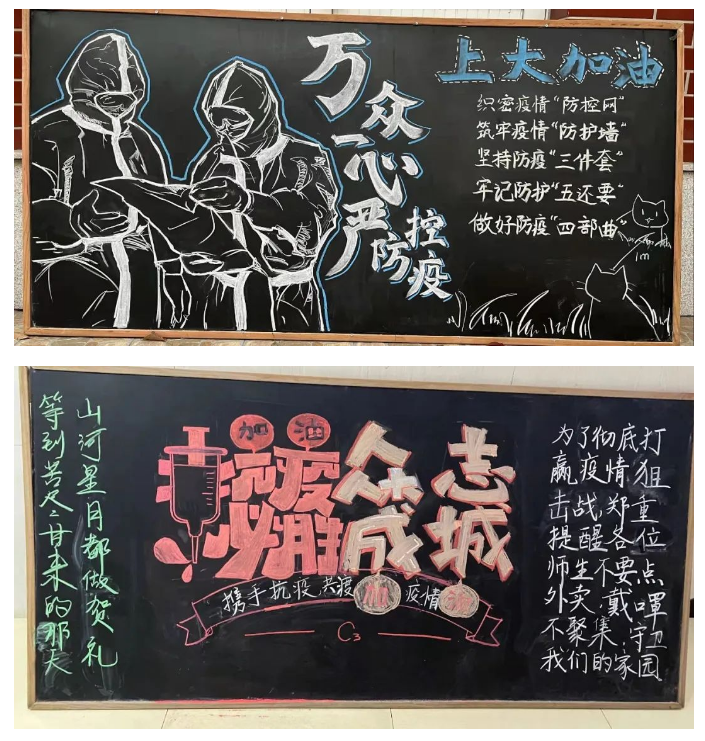 万众一心
严防控疫
上大加油
织密疫情"防控网"
筑牢疫情"防护墙"
坚持防疫"三件套"
牢记防护"五还要"
做好防疫"四部曲"
1m
等到苦尽甘来的那天
山河星月都做贺礼
加油
抗疫
必胜
众志
成城
携手抗疫 共渡 疫情
C3
为了彻底打
赢疫情狙
击战,郑重
提醒各位
师生不要点
外卖,戴口罩
不聚集,守卫
我们的家园